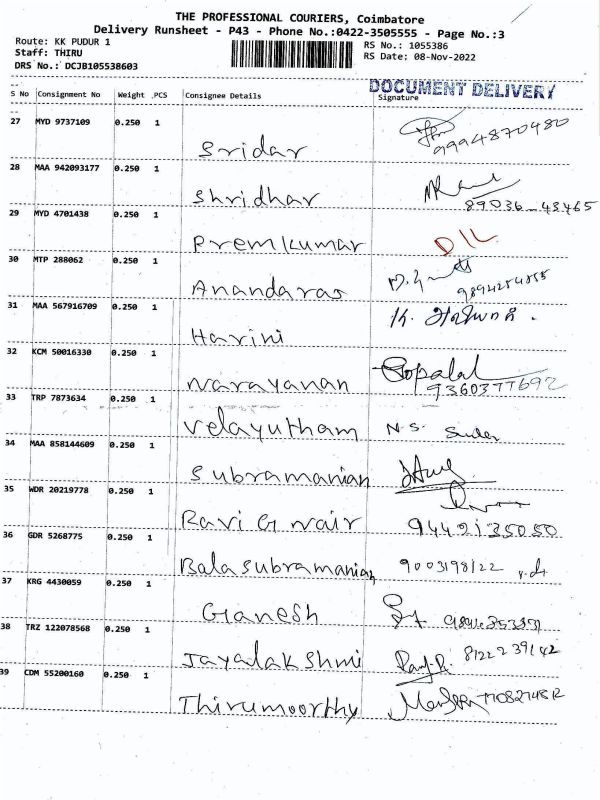 THE PROFESSIONAL COURIERS, Coimbatore
Delivery Runsheet - P43 - Phone No.:0422-3505555 - Page No.:3
Route: KK PUDUR 1 RS No.: 1055386
Staff: THIRU RS Date: 08-Nov-2022
DRS No.: DCJB105538603
DOCUMENT DELIVERY
S No Consignment No Weight PCS Consignee Details Signature
27 MYD 9737109 0.250 1
Sridar 9994870480
28 MAA 942093177 0.250 1
Shridhar 89036-43465
29 MYD 4701438 0.250 1
Premkumar D/L
30 MTP 288062 0.250 1
Anandaras 9894254855
31 MAA 567916709 0.250 1
Harini K.
32 KCM 50016330 0.250 1
Narayanan Gopalal
9360377692
33 TRP 7873634 0.250 1
Velayutham N.S.
34 MAA 858144609 0.250 1
Subramanian
35 WDR 20219778 0.250 1
Ravi G Nair 9442135050
36 GDR 5268775 0.250 1
Balasubramanian 9003198122
37 KRG 4430059 0.250 1
Ganesh
38 TRZ 122078568 0.250 1
Jayalakshmi 8122239142
39 CDM 55200160 0.250 1
Thirumoorthy 7708274812